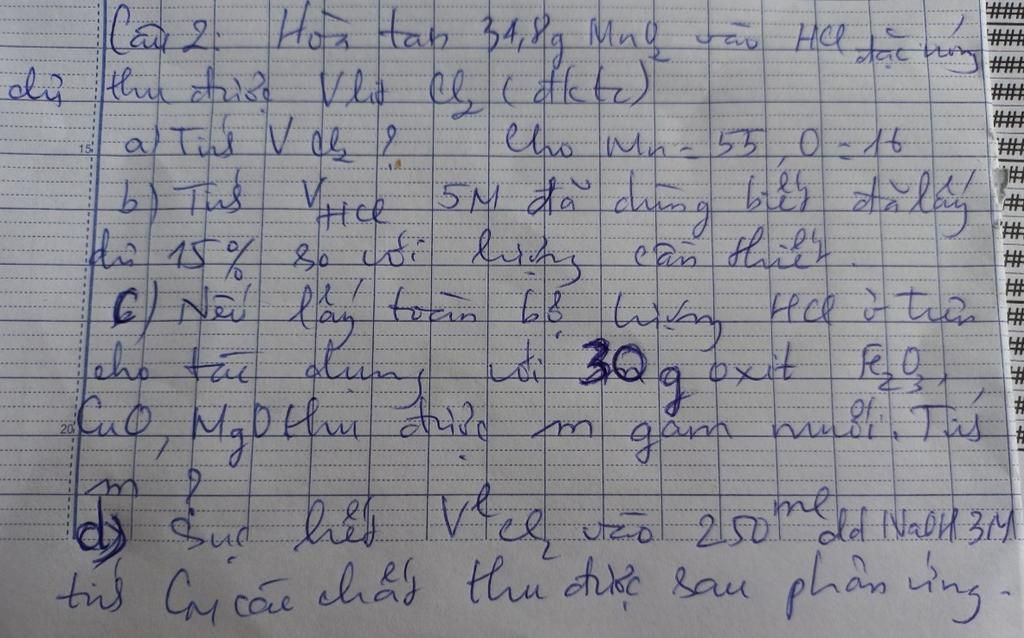 Câu 2: Hòa tan 34,8g MnO2 vào HCl đặc nóng
dủ thu được V lít Cl2 (đktc)
15 a) Tính V Cl2? Cho Mn = 55, O = 16
b) Tính VHCl 5M đã dùng biết đã lấy
dủ 15% so với lượng cần thiết.
c) Nếu lấy toàn bộ lượng HCl ở trên
cho tác dụng với 30g oxit Fe2O3,
20 CuO, MgO thu được m gam muối. Tính
m?
d) Sục hết V l Cl2 vào 250 ml dd NaOH 3M
tính CM các chất thu được sau phản ứng.